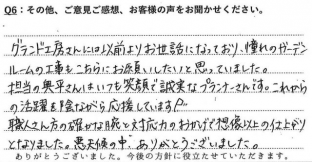 Q6：その他、ご意見ご感想、お客様の声をお聞かせください。
グランド工房さんには以前よりお世話になっており、憧れのガーデン
ルームの工事もこちらにお願いしたいと思っていました。
担当の奥平さんはいつも笑顔で誠実なプランナーさんです。これから
の活躍を陰ながら応援しています♪
職人さん方の確かな腕と対応力のおかげで想像以上の仕上がり
となりました。悪天候の中、ありがとうございました。
ありがとうございました。今後の方針に役立たせていただきます。